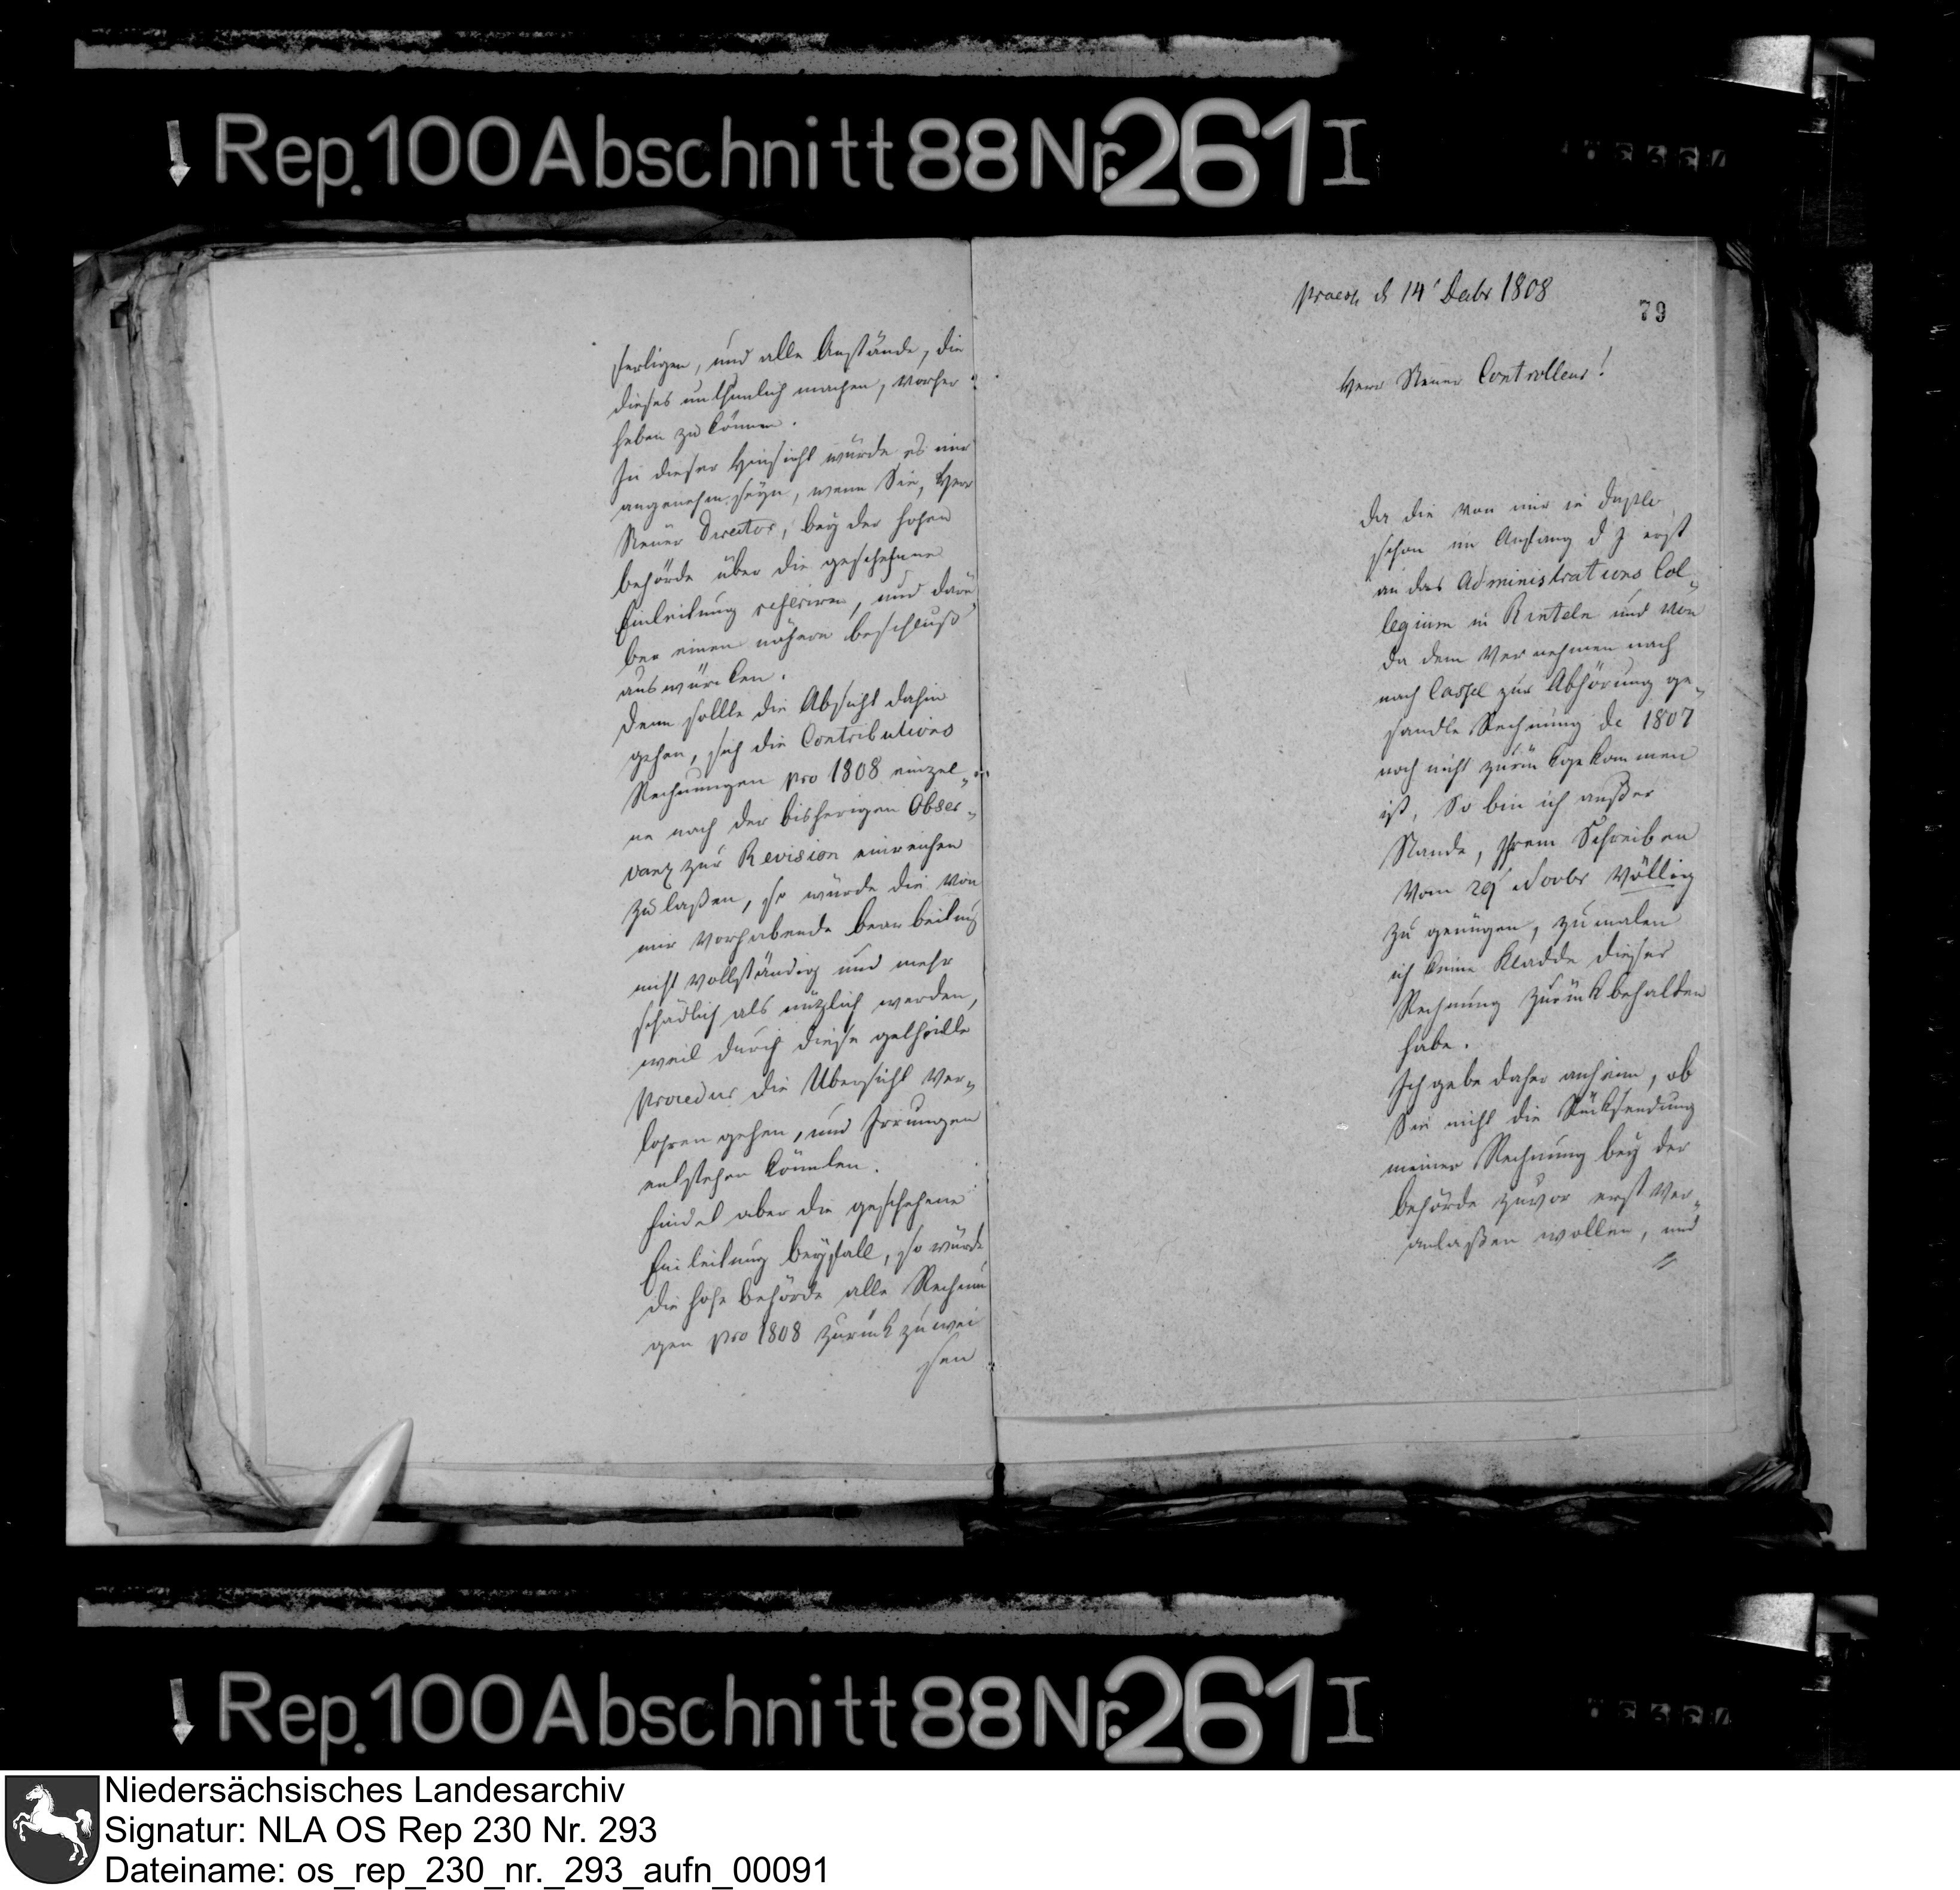 Rep. 100 Abschnitt 88 Nr. 261 I
fertigen, und alle Anstände, die
dieses unthunlich machen, vorher
heben zu können.
In dieser Hinsicht würde es mir
angenehm seyn, wenn Sie, Herr
Steuer Director, bey der hohen
Behörde über die geschehene
Einleitung referiren, und darü
ber einen nähern Beschluß
auswürcken.
Denn sollte die Absicht dahin
gehen, sich die Contributions
Rechnungen pro 1808 einzel„
ne nach der bisherigen Obser„
vanz zur Revision einreichen
zu laßen, so würde die von
mir vorhabende Bearbeitung
nicht vollständig und mehr
schädlich als nützlich werden,
weil durch diese getheilte
Procedur die Übersicht ver„
lohren gehen, und Irrungen
entstehen könnten.
Findet aber die geschehene
Einleitung Beyfall, so würde
die hohe Behörde alle Rechnun
gen pro 1808 zurück zu wei
sen
praes. d 14' Decbr 1808
79
Herr Steuer Controlleur!
Da die von mir in Duplo
schon im Anfang d J erst
an das Administrations Col„
legium in Rinteln und von
da dem Vernehmen nach
nach Cassel zur Abhörung ge„
sandte Rechnung de 1807
noch nicht zurückgekommen
ist, So bin ich außer
Stande, Ihrem Schreiben
vom 29' Novbr völlig
zu genügen, zumalen
ich keine Kladde dieser
Rechnung zurückbehalten
habe.
Ich gebe daher anheim, ob
Sie nicht die Rücksendung
meiner Rechnung bey der
Behörde zuvor erst ver„
anlaßen wollen, und
Rep. 100 Abschnitt 88 Nr. 261 I
Niedersächsisches Landesarchiv
Signatur: NLA OS Rep 230 Nr. 293
Dateiname: os_rep_230_nr._293_aufn_00091